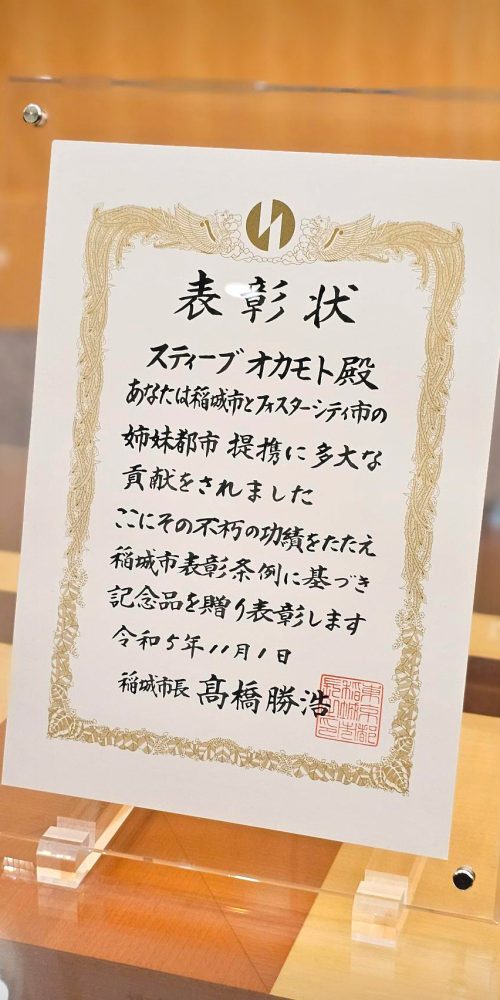 表彰状
スティーブ オカモト殿
あなたは稲城市とフォスターシティ市の
姉妹都市 提携に多大な
貢献をされました
ここにその不朽の功績をたたえ
稲城市表彰条例に基づき
記念品を贈り表彰します
令和5年11月1日
稲城市長 髙橋勝浩
東京都
稲城市
長之印